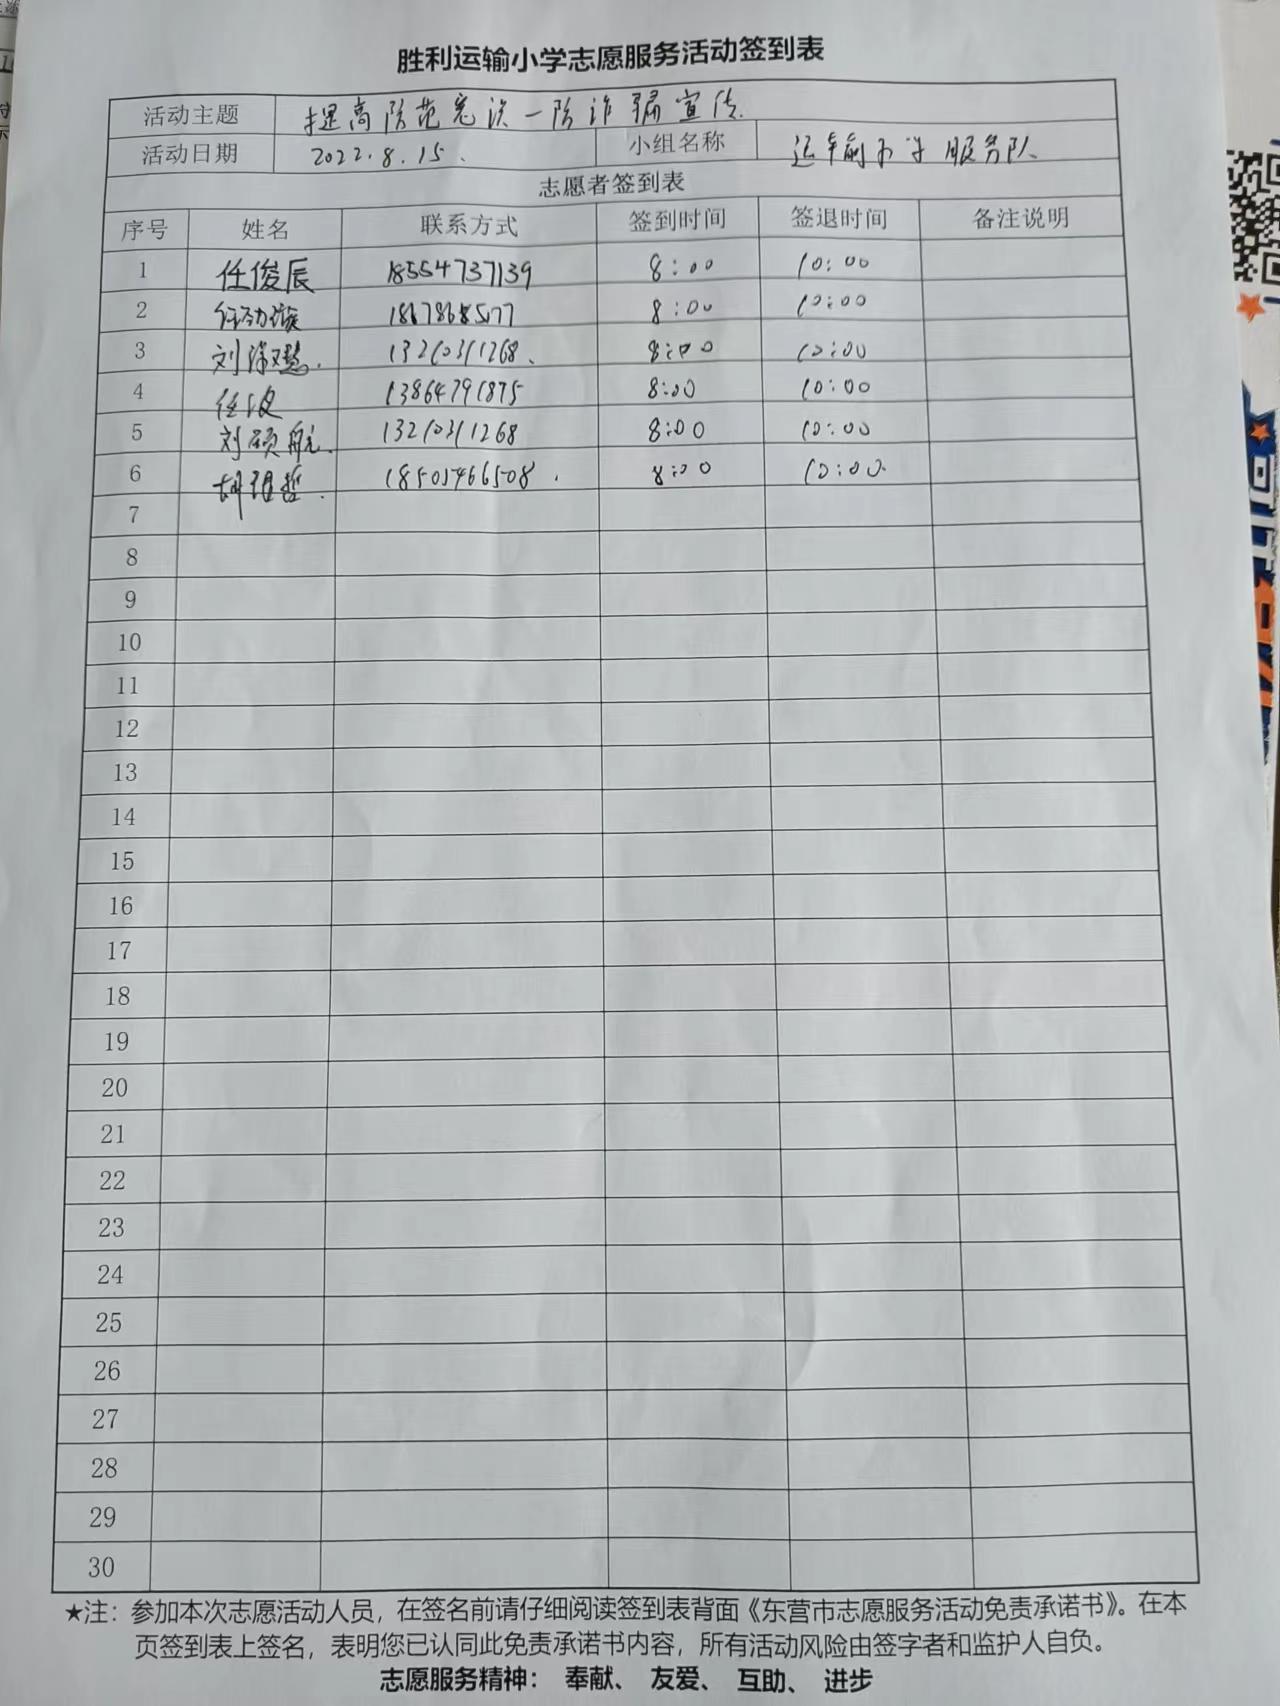 胜利运输小学志愿服务活动签到表
活动主题 提高防范意识一防诈骗宣传
活动日期 2022.8.15. 小组名称 运输小学服务队
志愿者签到表
序号 姓名 联系方式 签到时间 签退时间 备注说明
1 任俊辰 18554737139 8:00 10:00
2 8:00 10:00
3 刘 13210311268、 8:00 10:00
4 任波 13864791875 8:00 10:00
5 刘硕航. 13210311268 8:00 10:00
6 胡 哲. 18505466508. 8:00 10:00.
7
8
9
10
11
12
13
14
15
16
17
18
19
20
21
22
23
24
25
26
27
28
29
30
★注：参加本次志愿活动人员，在签名前请仔细阅读签到表背面《东营市志愿服务活动免责承诺书》。在本
页签到表上签名，表明您已认同此免责承诺书内容，所有活动风险由签字者和监护人自负。
志愿服务精神： 奉献、 友爱、 互助、 进步